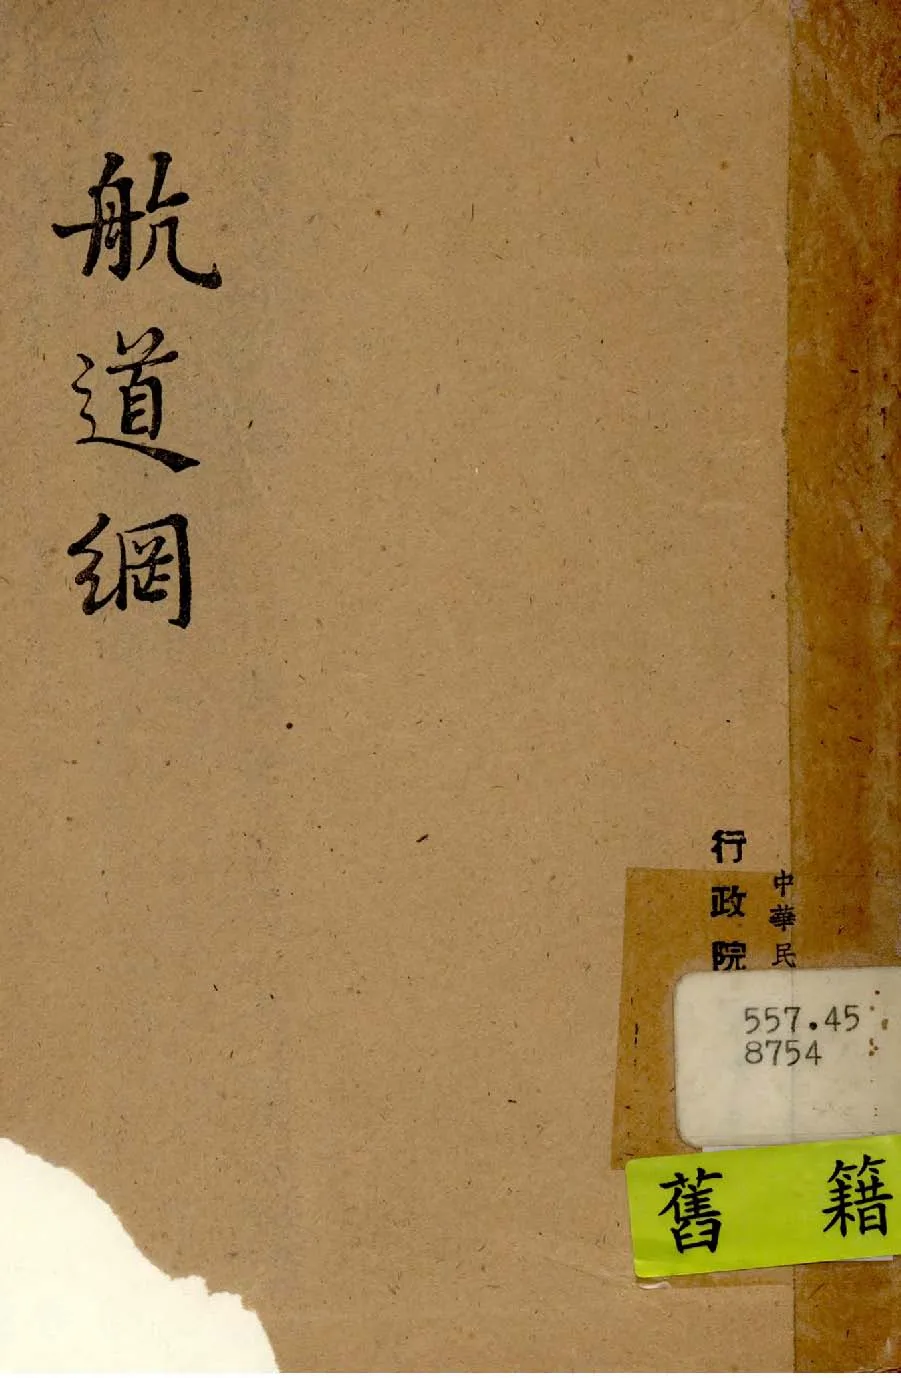 航道網
行政院
中華民
557.45
8754
舊籍